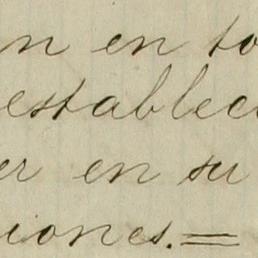 n en to
establec
er en su
iones.=